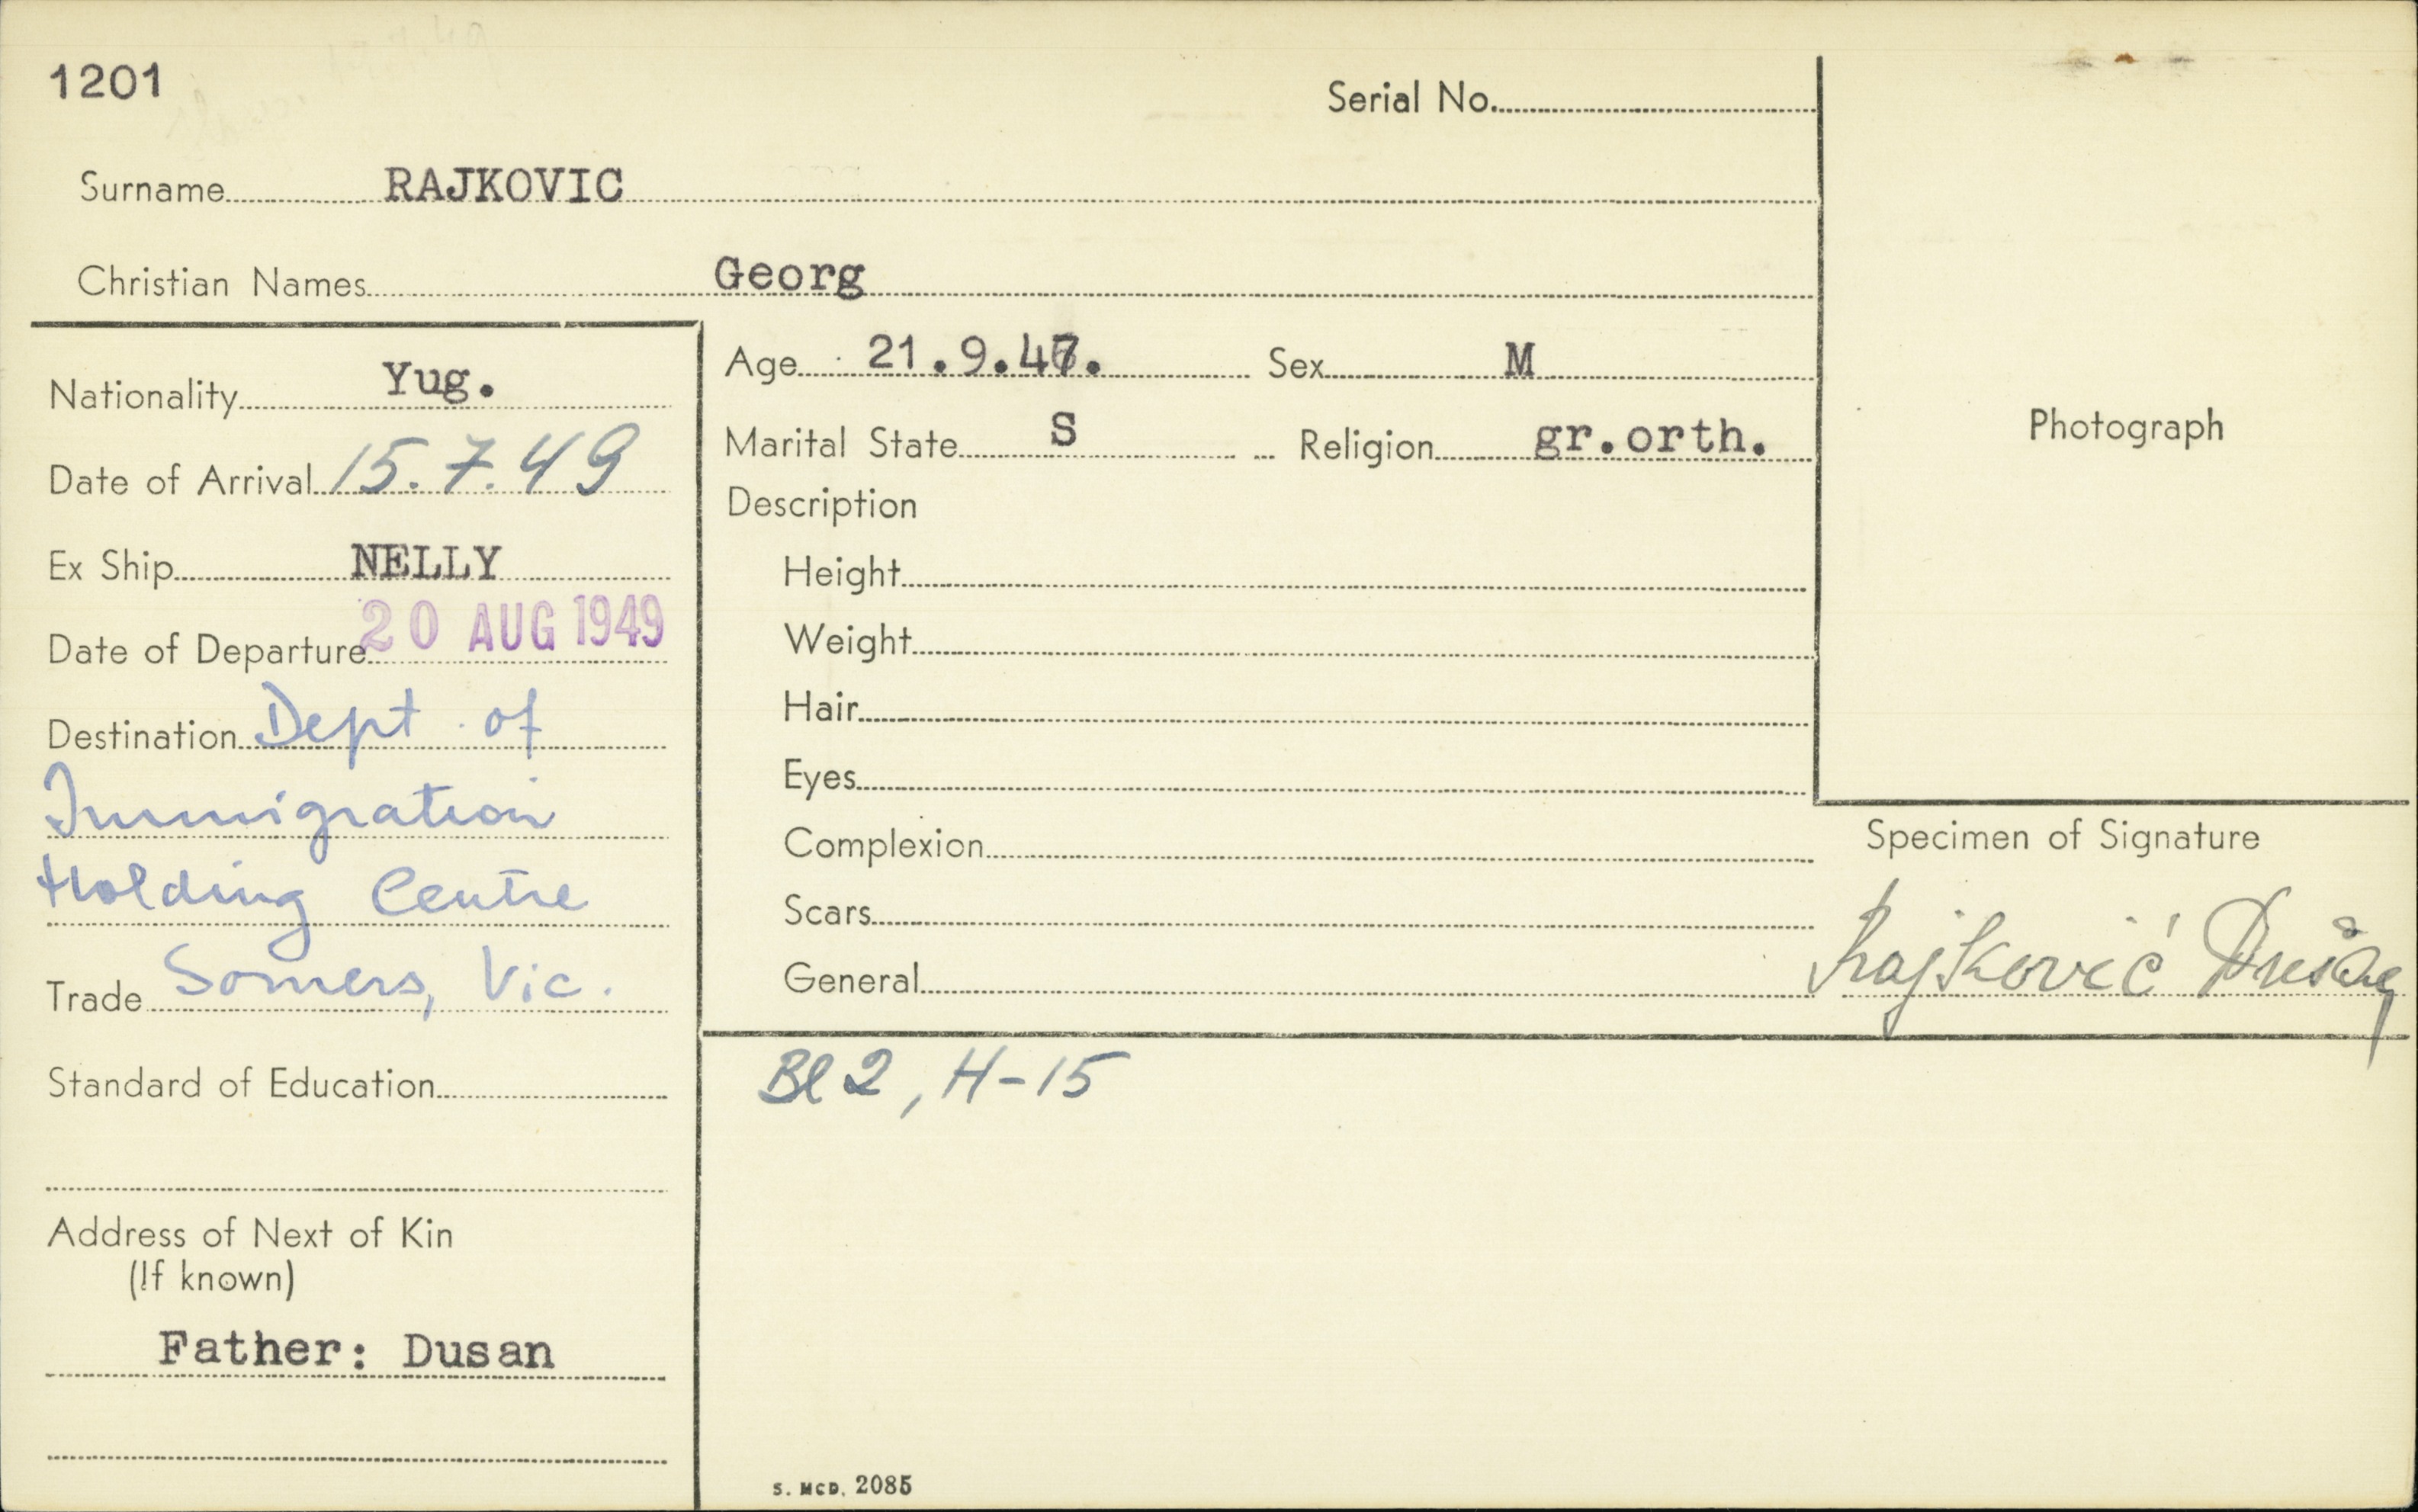 1201
Serial No.
Surname RAJKOVIC
Christian Names Georg
Nationality Yug.
Date of Arrival 15.7.49
Ex Ship NELLY
Date of Departure 20 AUG 1949
Destination Dept of
Immigration
Holding Centre
Somers, Vic.
Trade
Standard of Education
Address of Next of Kin
(If known)
Father: Dusan
Age 21.9.47. Sex M
Marital State S Religion gr.orth.
Description
Height
Weight
Hair
Eyes
Complexion
Scars
General
Photograph
Specimen of Signature
Rajković Dušan
Bl 2, H-15
S. MCD. 2085